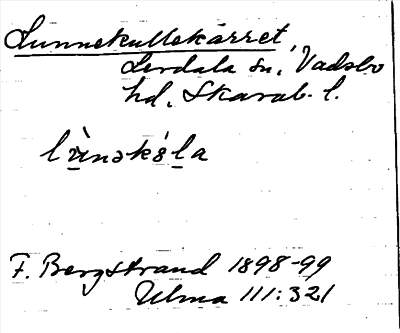 Lunnekullekärret,
Lerdala sn, Vadsbo
hd, Skarab. l.
F. Bergstrand 1898-99
Ulma 111:321